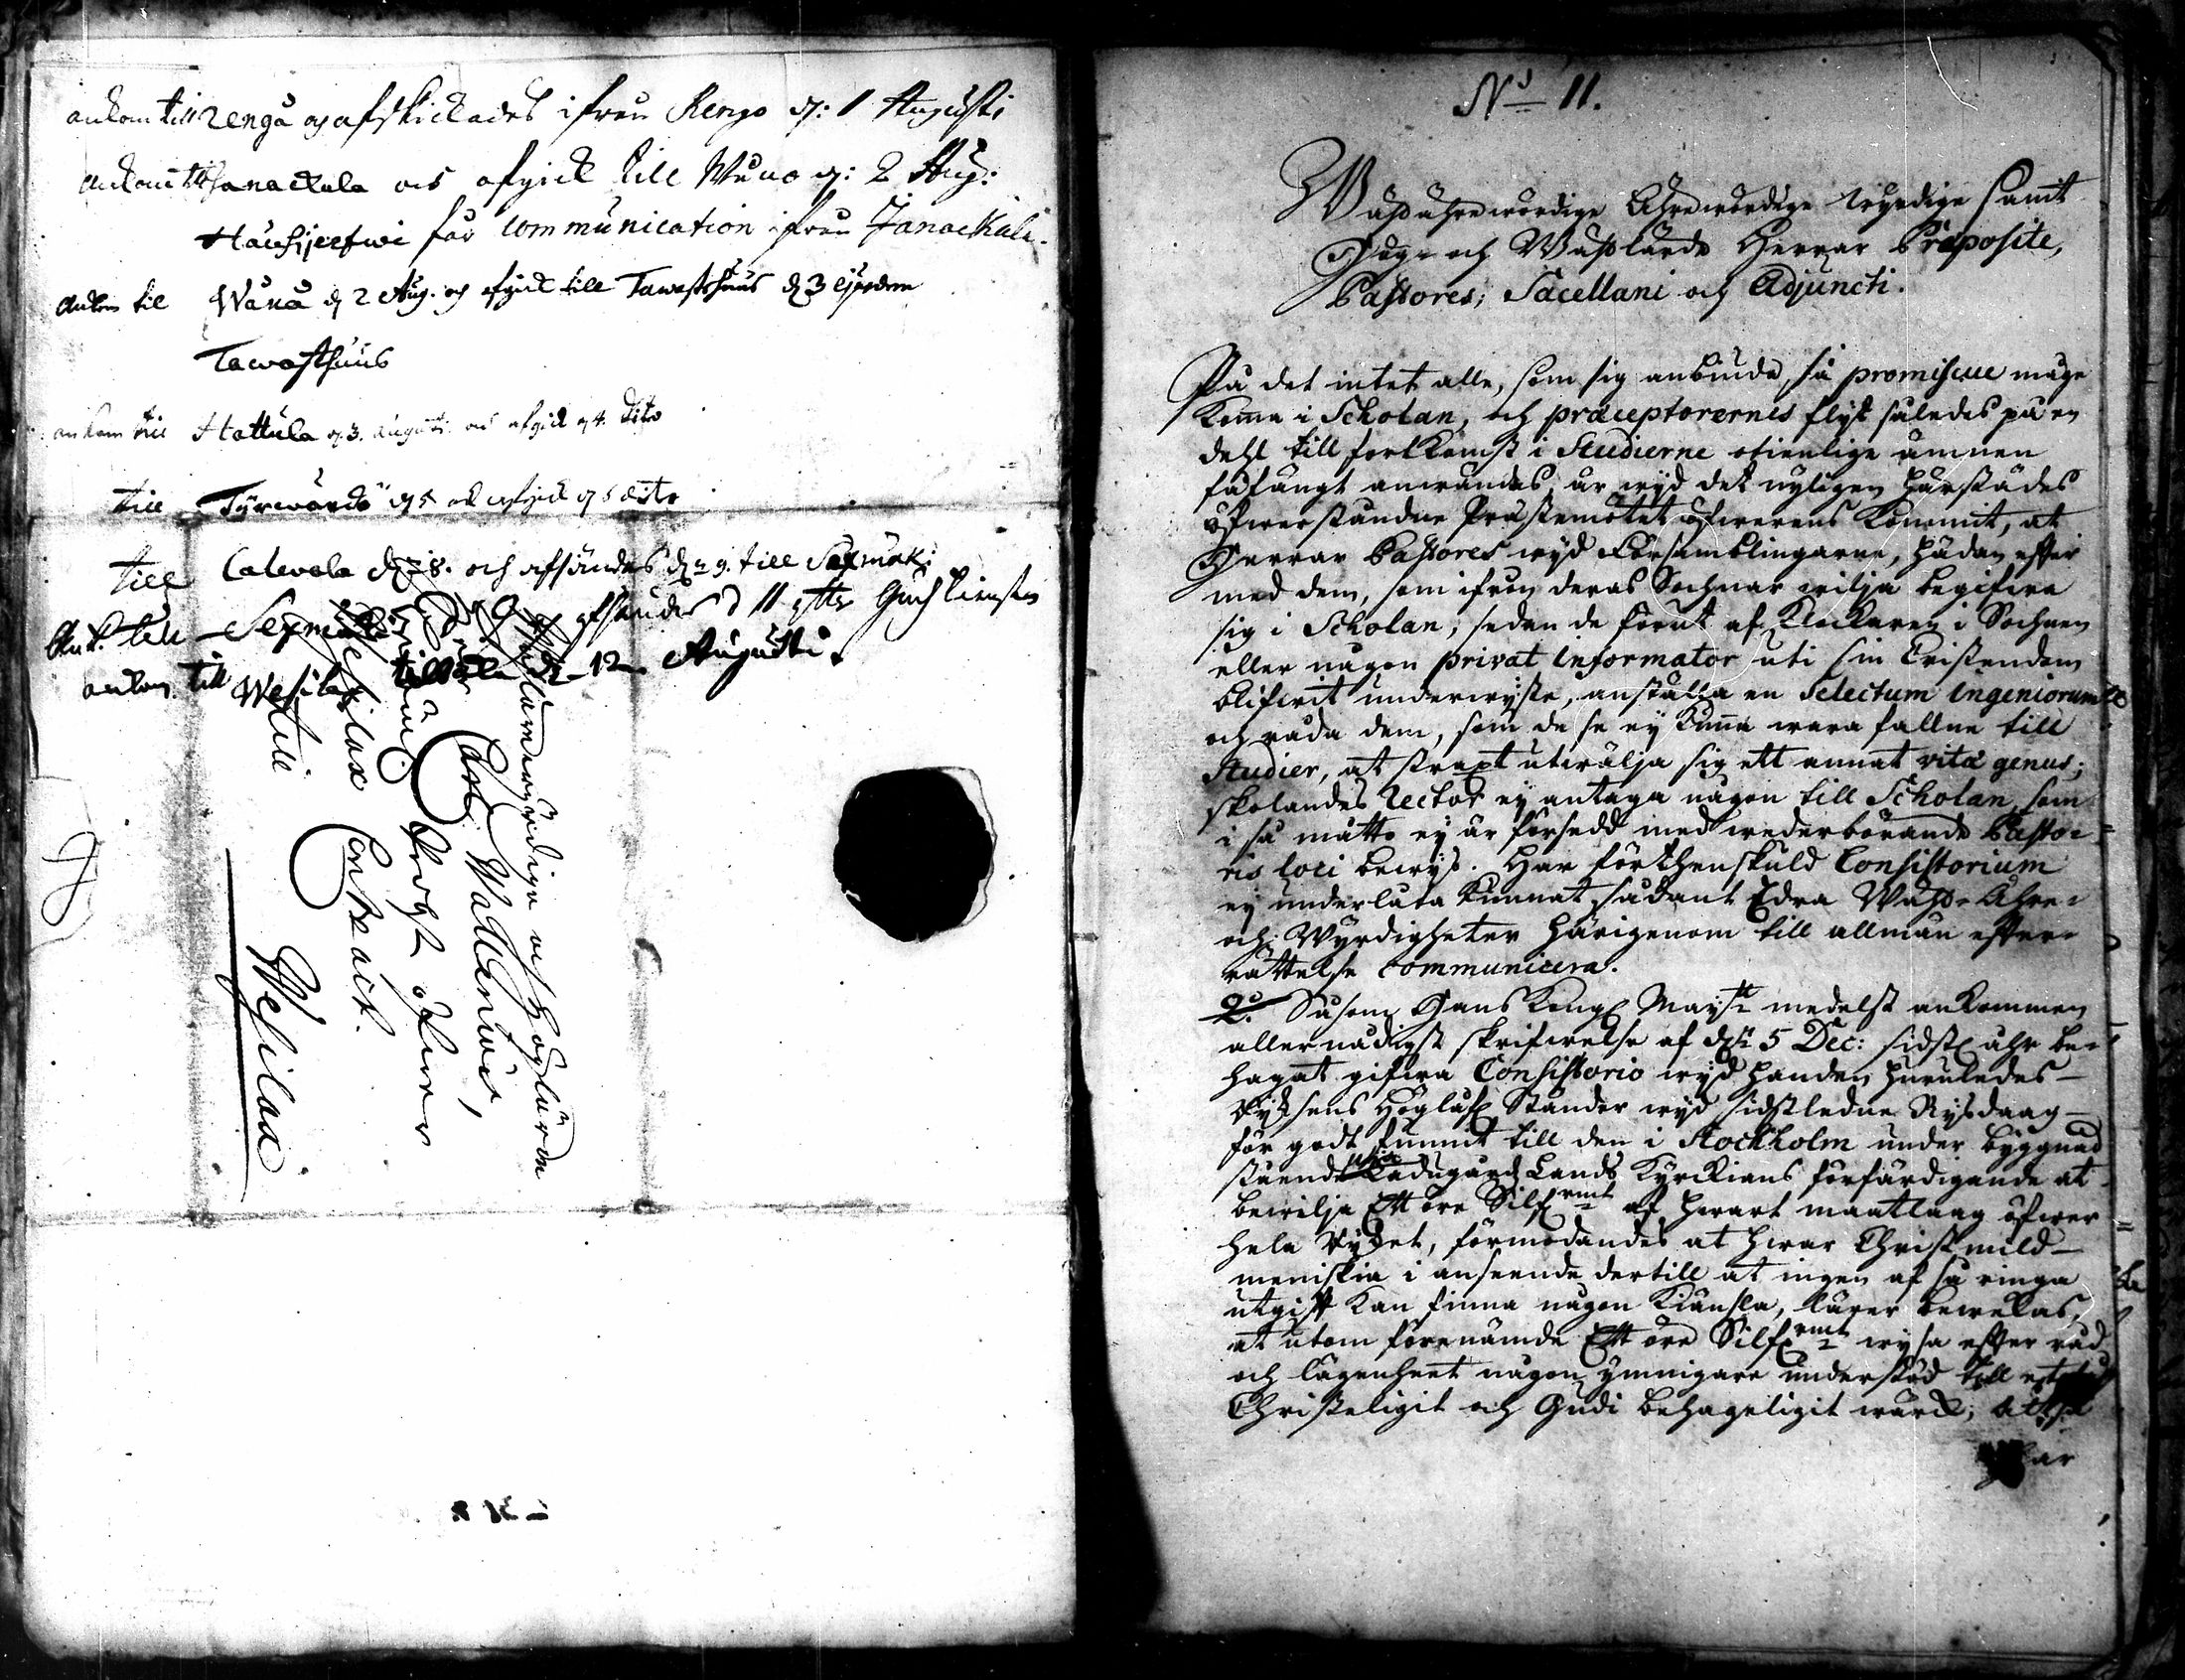 ankom till Rengå och afskickades ifrån Rengo d: 1 Augusti
ankom till Janackala och afgick till Wåno d: 2 Aug:
Hausjerfwi får communication ifrån Janackala.
ankom til Wånå d 2 Aug. och afgick till Tawasthuus d 3 ejusdem
Tawasthuus
ankom till Hattula d 3. augusti och afgick d 4. dito
till Tyrwändö d 5 och afgick d 5 dito
till Calvola d 8. och afsändes d 9. till Saxmäki
Ank. till Sexmäki
afsändes d 11
ankom till Wesilax
d 12 Augusti
Carl Wallenius,
Probst öfwer
Contract.
Wesilax
till
Wesilax
No 11.
Wählährewördige Ährewördige wyrdige samt
Hög- och Wählärde Herrar Præposite,
Pastores, Sacellani och Adjuncti.
På det intet alle, som sig anbiuda, så promiscue måge
komma i Scholan, och præceptorernes flyt således på en
dehl till fortkomst i Studierne otienlige ämnen
fåfängt anwändas, är wyd det nyligen härstädes
öfwerståndne Prästemötet öfwerens kommit, at
Herrar Pastores wyd Församblingarne, hädan effter
med dem, som ifrån deras Sochnar wilja begifwa
sig i Scholan, sedan de förut af Klockaren i Sochnen
eller någon privat informator uti sin Cristendom
blifwit underwyste, anställa en Selectum ingeniorum
och råda dem, som de se ey kunna wara fallne till
Studier, at straxt utwälja sig ett annat vitæ genus;
skolandes Rector ey antaga någon till Scholan, som
i så måtto ey är försedd med wederbörande Pasto-
ris loci bewys. Har förthenskuld Consistorium
ey underlåta kunnat, sådant Edra Wähl-Ähre-
och Wyrdigheter härigenom till allmän effter-
rättelse communicera.
2o. Såsom Hans Kongl May:tt medelst ankommen
allernådigst skrifwelse af d: 5 Dec: sidstl åhr be-
hagat gifwa Consistorio wyd handen huruledes
Ryksens Höglofl Ständer wyd sidstledne Rysdaag
för godt funnit till den i Stockholm under byggnad
stående Ladugårds Lands Kyrkians förfärdigande at
bewilja Ett öre Silf:rmt af hwart maatlaag öfwer
hela Ryket, förmodandes at hwar Christmild
meniskia i anseende dertill at ingen af så ringa
utgift kan finna någon kiänsla, lärer bewekas,
at utom förenämde Ett öre Silf:rmt wysa effter råd
och lägenheet någon ymnigare understöd till ett
Christeligit och Gudi behageligit wärck; altså
har